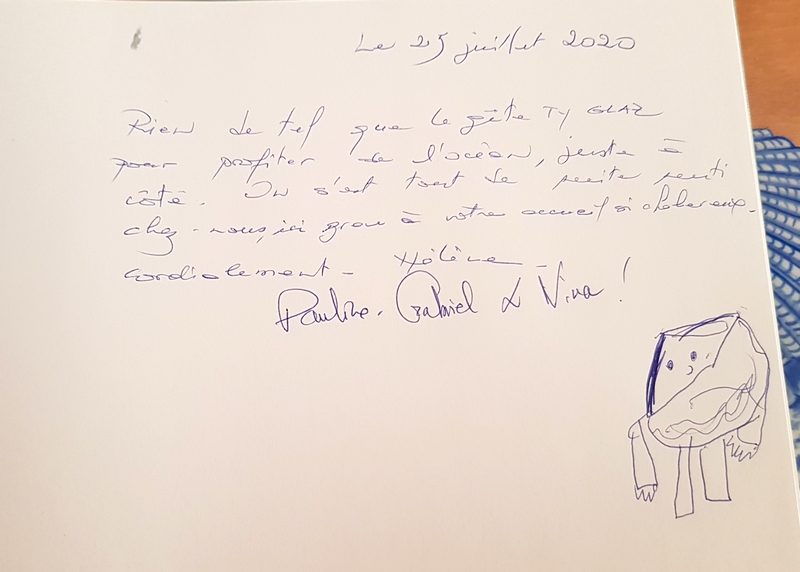 Le 25 juillet 2020
Rien de tel que le gîte TY GLAZ
pour profiter de l'océan, juste à
côté. On s'est tout de suite senti
chez-nous, ici grace à votre accueil si chaleureux.
Cordialement - Hélène -
Pauline, Gabriel & Nina !